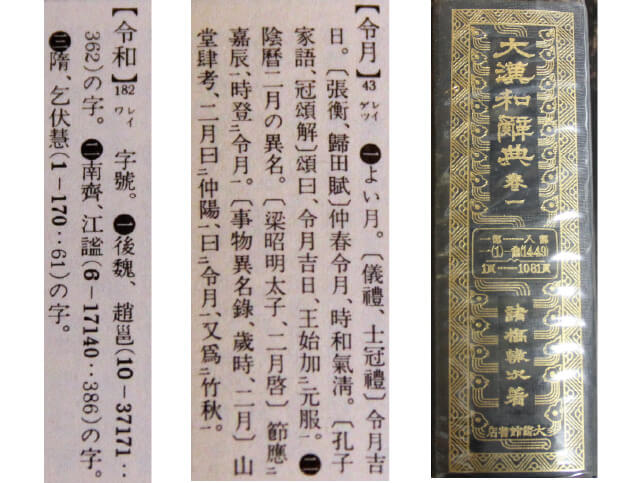 【令和】182 レイワ 字號。❶後魏、趙邕(10-37171‥
362)の字。❷南齊、江謐(6-17140‥386)の字。
❸隋、乞伏慧(1-170‥61)の字。
【令月】43 レイゲツ ❶よい月。〔儀禮、士冠禮〕令月吉
日。〔張衡、歸田賦〕仲春令月、時和氣淸。〔孔子
家語、冠頌解〕頌曰、令月吉日、王始加二元服一。❷
陰曆二月の異名。〔梁昭明太子、二月啓〕節應二
嘉辰一、時登二令月一。〔事物異名錄、歲時、二月〕山
堂肆考、二月曰二仲陽一、曰二令月一、又爲二竹秋一。
大漢和辭典 卷一
一部——人部
1頁——1081頁
諸橋轍次著
大修館書店